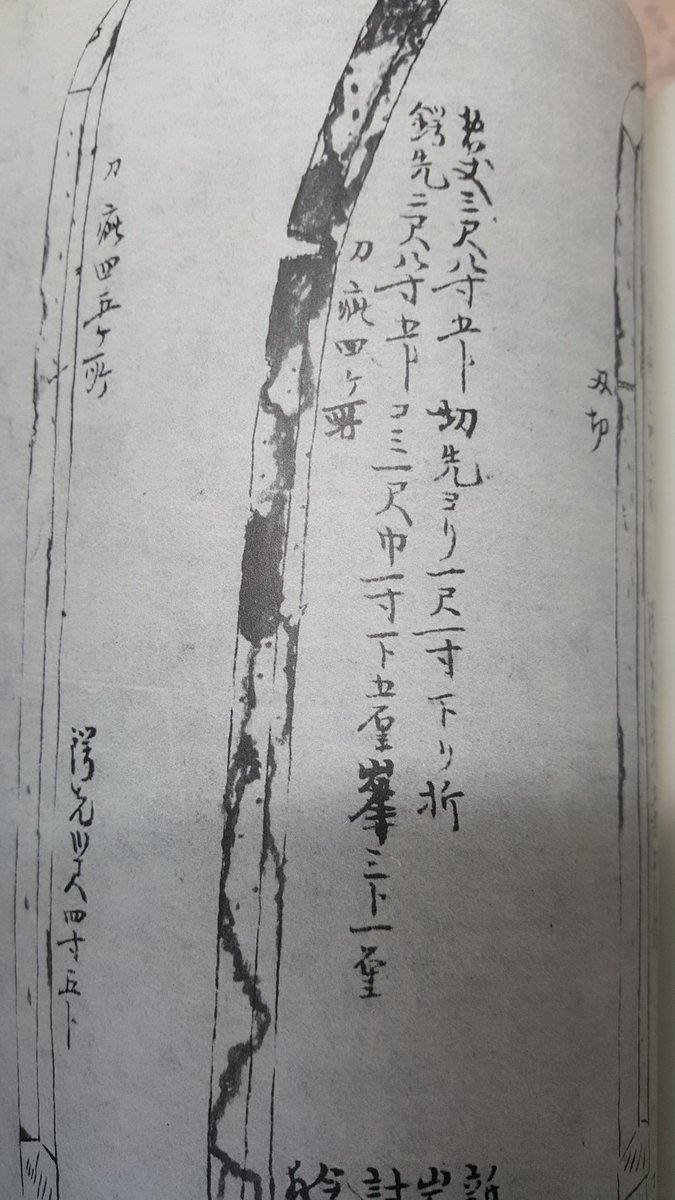 刃切
惣丈三尺八寸五ト切先ヨリ一尺一寸下リ折
鍔先二尺八寸五トコミ一尺巾一寸一ト五厘峯三ト一厘
刀疵四ケ所
刀疵四五ケ所
鍔先尺四寸五ト